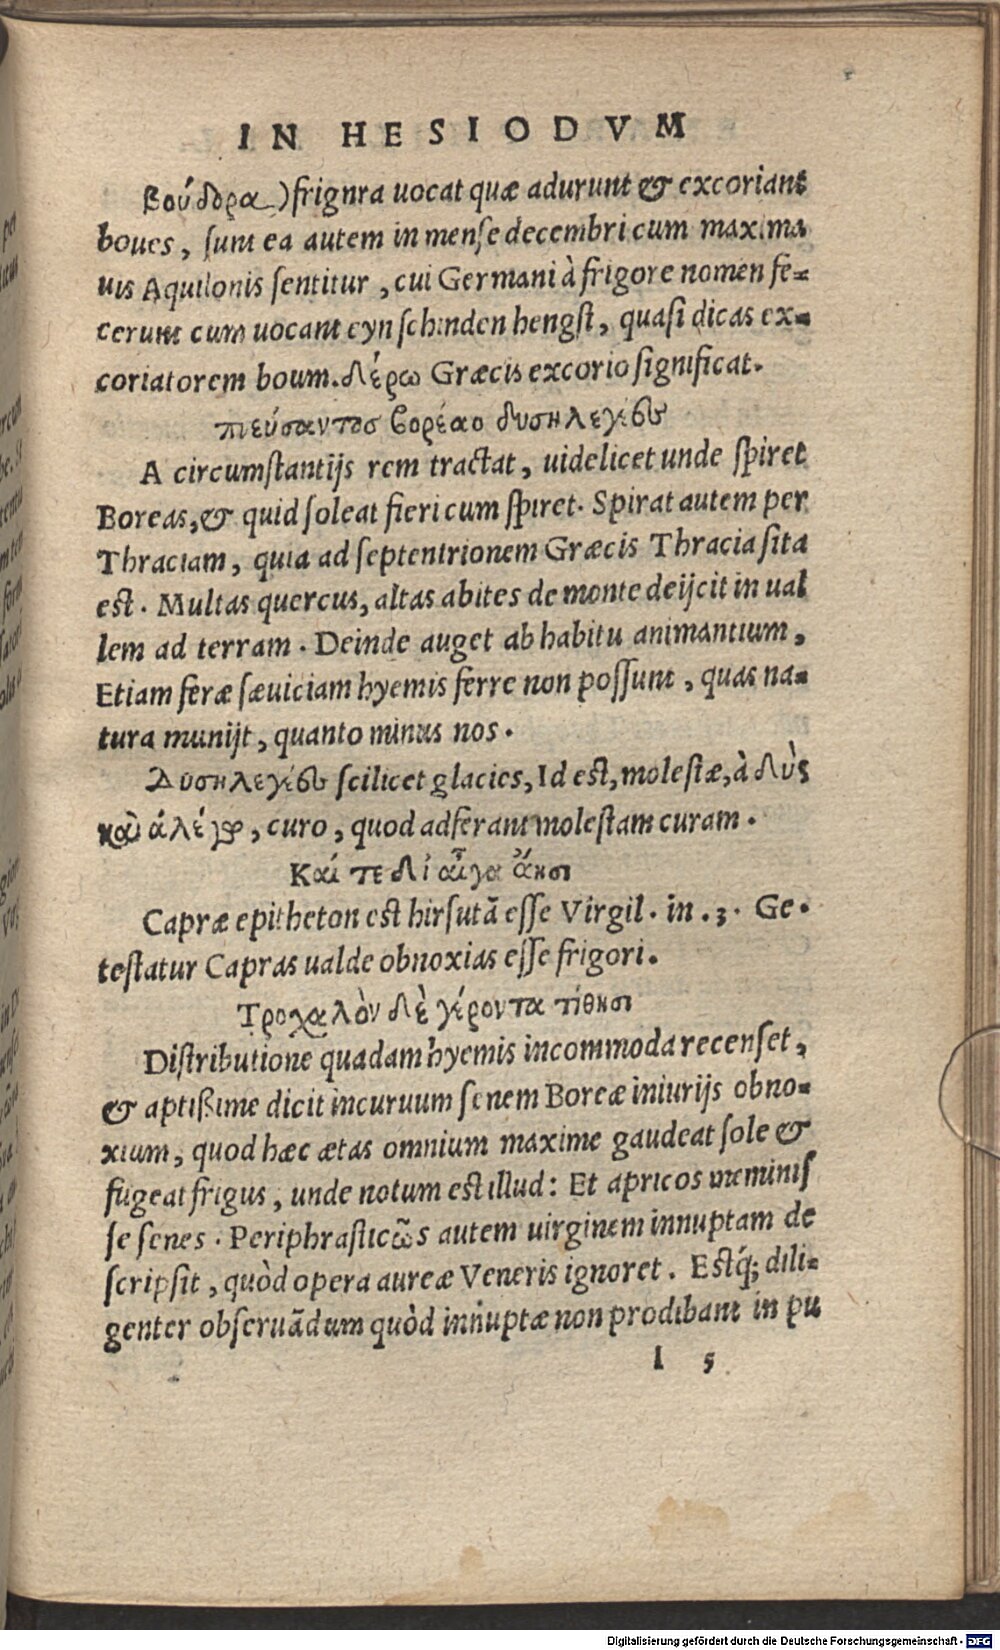 IN HESIODVM
Βούδορα) frigora uocat quæ adurunt & excoriant
boues, sunt ea autem in mense decembri cum maxima
uis Aquilonis sentitur, cui Germani à frigore nomen fe-
cerunt cum uocant eyn schinden hengst, quasi dicas ex-
coriatorem boum. δέρω Græcis excorio significat.
πνεύσαντος βορέαο δυσηλεγέος
A circumstantijs rem tractat, uidelicet unde spiret
Boreas, & quid soleat fieri cum spiret. Spirat autem per
Thraciam, quia ad septentrionem Græcis Thracia sita
est. Multas quercus, altas abites de monte deijcit in ual
lem ad terram. Deinde auget ab habitu animantium,
Etiam feræ sæuiciam hyemis ferre non possunt, quas na-
tura munijt, quanto minus nos.
Δυσηλεγέος scilicet glacies, Id est, molestæ, à δὺς
καὶ ἀλέγω, curo, quod adferant molestam curam.
Καί τε δι αἶγα ἄησι
Capræ epitheton est hirsutã esse Virgil. in .3. Ge.
testatur Capras ualde obnoxias esse frigori.
Τροχαλὸν δὲ γέροντα τίθησι
Distributione quadam hyemis incommoda recenset,
& aptißime dicit incuruum senem Boreæ iniurijs obno-
xium, quod hæc ætas omnium maxime gaudeat sole &
fugeat frigus, unde notum est illud: Et apricos meminis
se senes. Periphrasticῶs autem uirginem innuptam de
scripsit, quòd opera aureæ Veneris ignoret. Estq́; dili-
genter obseruãdum quòd innuptæ non prodibant in pu
l 5
Digitalisierung gefördert durch die Deutsche Forschungsgemeinschaft - DFG